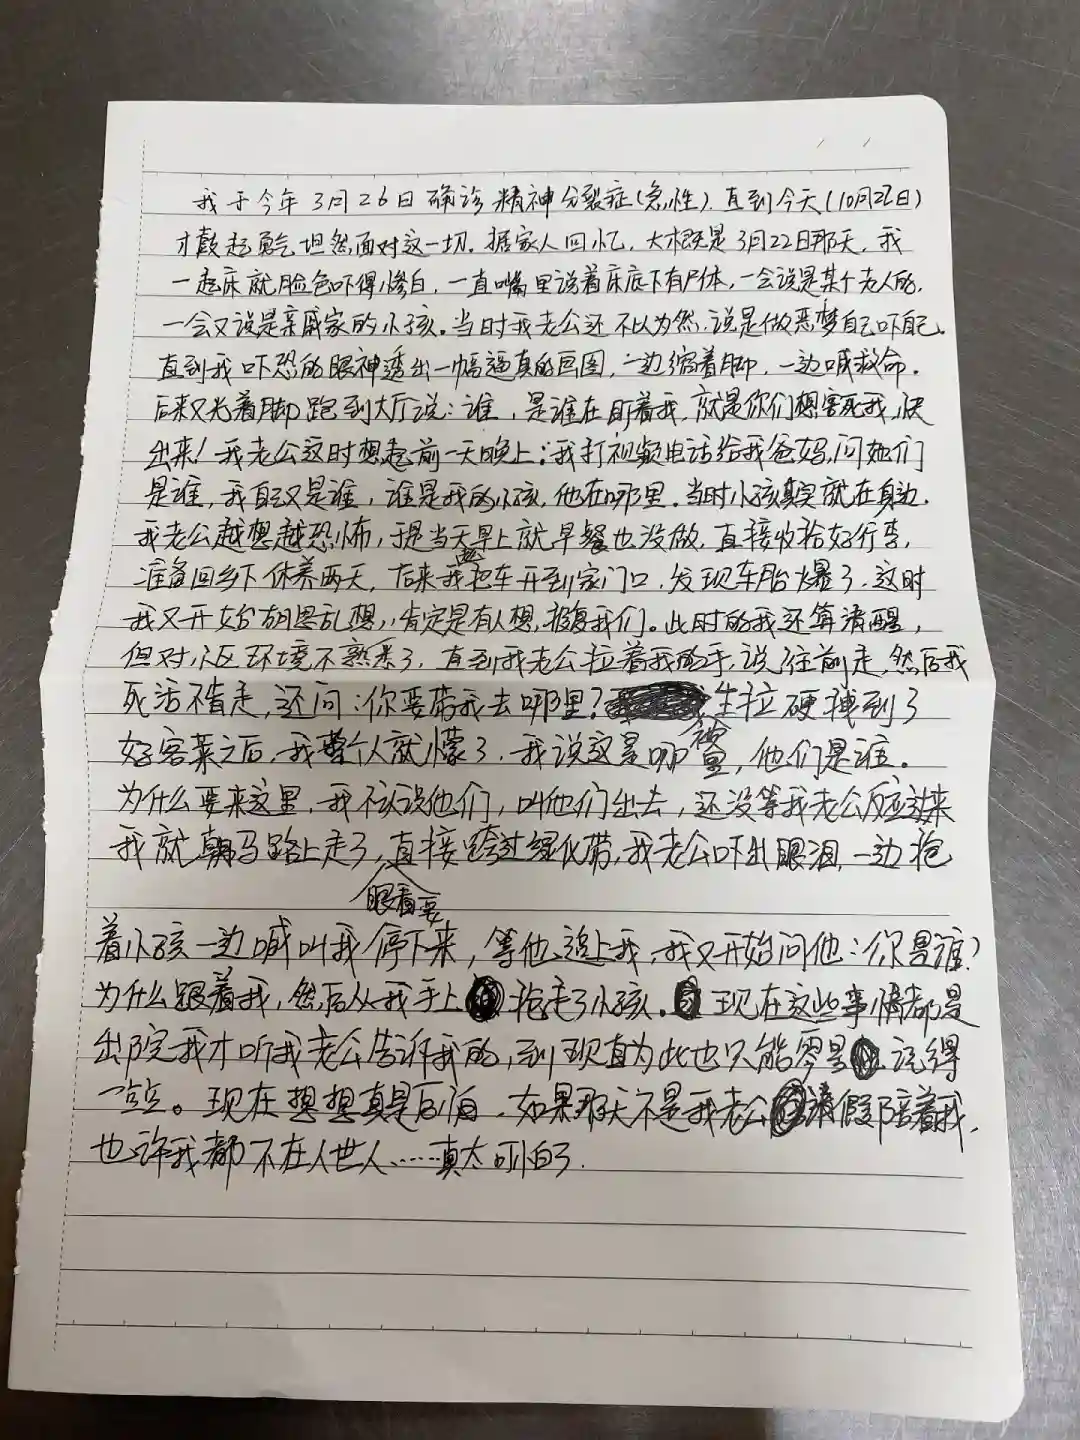 我于今年3月26日确诊精神分裂症(急性).直到今天(10月2日)
才鼓起勇气坦然面对这一切.据家人回忆,大概是3月22日那天,我
一起床就脸色吓得惨白,一直嘴里说着床底下有尸体,一会说是某个老人的,
一会又说是亲戚家的小孩。当时我老公还不以为然,说是做恶梦自己吓自己.
直到我吓恐的眼神透出一幅逼真的画图,一边缩着脚,一边喊救命.
后来又光着脚跑到大厅说:谁,是谁在盯着我,就是你们想害死我,快
出来!我老公这时想起前一天晚上:我打视频电话给我爸妈,问她们
是谁,我自己又是谁,谁是我的小孩,他在哪里.当时小孩其实就在身边.
我老公越想越恐怖,于是当天早上就早餐也没做,直接收拾好行李,
准备回乡下休养两天,后来我把车开到家门口,发现车胎爆了.这时
我又开始胡思乱想,肯定是有人想,报复我们。此时的我还算清醒,
但对小区环境不熟悉了,直到我老公拉着我的手,说往前走,然后我
死活不肯走,还问:你要带我去哪里?生拉硬拽到了
好客菜之后,我整个人就懵了.我说这是哪里,他们是谁.
为什么要来这里,我不该说他们,叫他们出去,还没等我老公反应过来
我就朝马路上走了,直接跨过绿化带,我老公吓出眼泪,一边抱
眼看要
着小孩一边喊叫我停下来,等他追上我,我又开始问他:你是谁?
为什么跟着我,然后从我手上抢走了小孩.现在这些事情都是
出院我才听我老公告诉我的,到现直为此也只能零星记得
一点点。现在想想真是后怕.如果那天不是我老公请假陪着我,
也许我都不在人世人……真太可怕了.